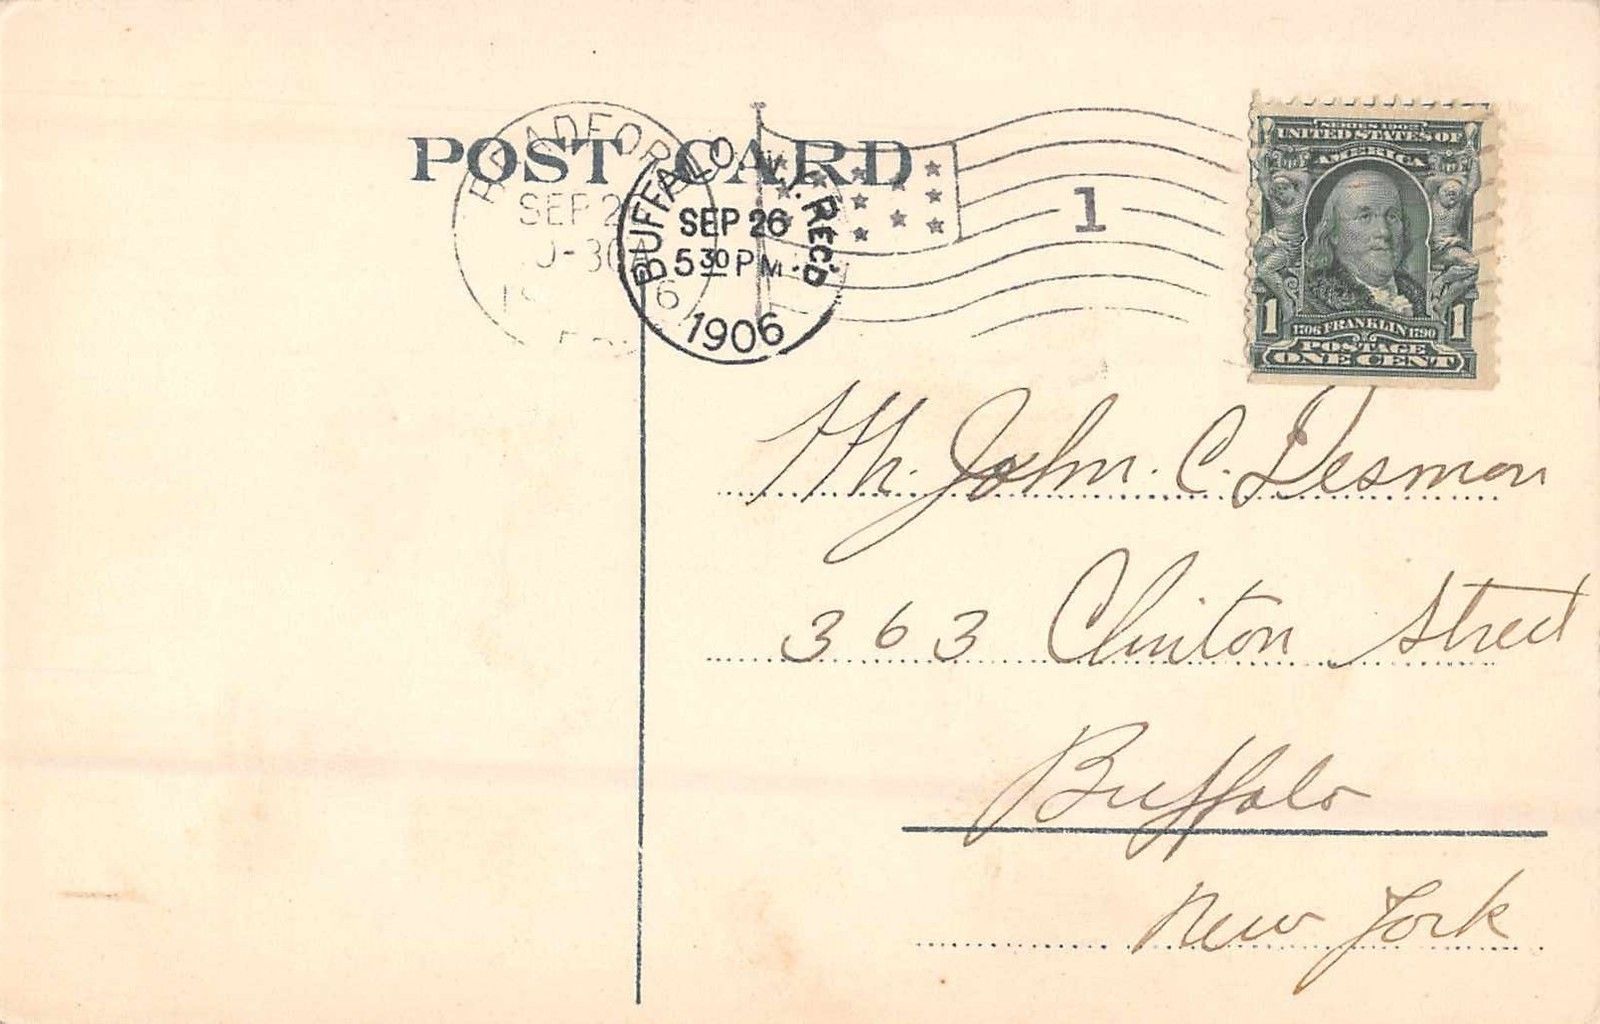 POST CARD
BRADFORD
SEP 2
0-30A
6
BUFFALO, N.Y. REC'D
SEP 26
5 30 PM
1906
1
SERIES 1902
UNITED STATES OF
AMERICA
1 1
1706 FRANKLIN 1790
POSTAGE
ONE CENT
Mr. John. C. Desmon
363 Clinton Street
Buffalo
New York